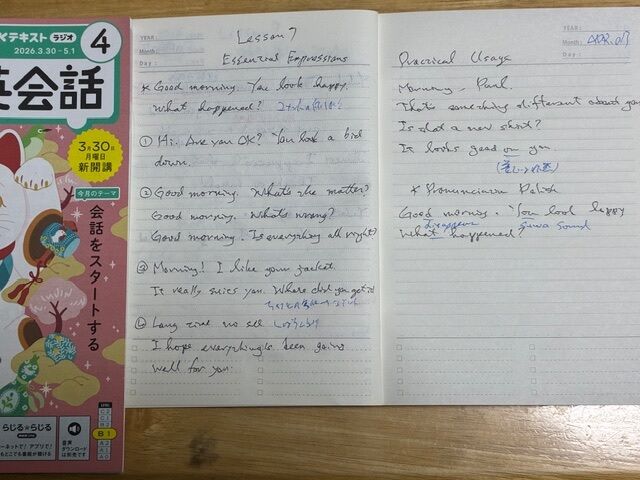 テキスト ラジオ
2026.3.30-5.1
4
英会話
3月30日
月曜日
新開講
今月のテーマ
会話をスタートする
らじる★らじる
音声
ダウンロード
LEVEL
C2
C1
B2
B1
A2
A1
A0
Lesson 7
Essential Expressions
* Good morning. You look happy.
What happened?
① Hi. Are you OK? You look a bit
down.
② Good morning. What's the matter?
Good morning. What's wrong?
Good morning. Is everything all right?
③ Morning! I like your jacket.
It really suits you. Where did you get it
④ Long time no see
I hope everything's been going
well for you.
YEAR:
Month:
Day:
APR.
Practical Usage
Morning, Paul.
That's something different about you
Is that a new shirt?
It looks good on you.
* Pronunciation Polish
Good morning. You look happy
disappear
same sound
What happened?